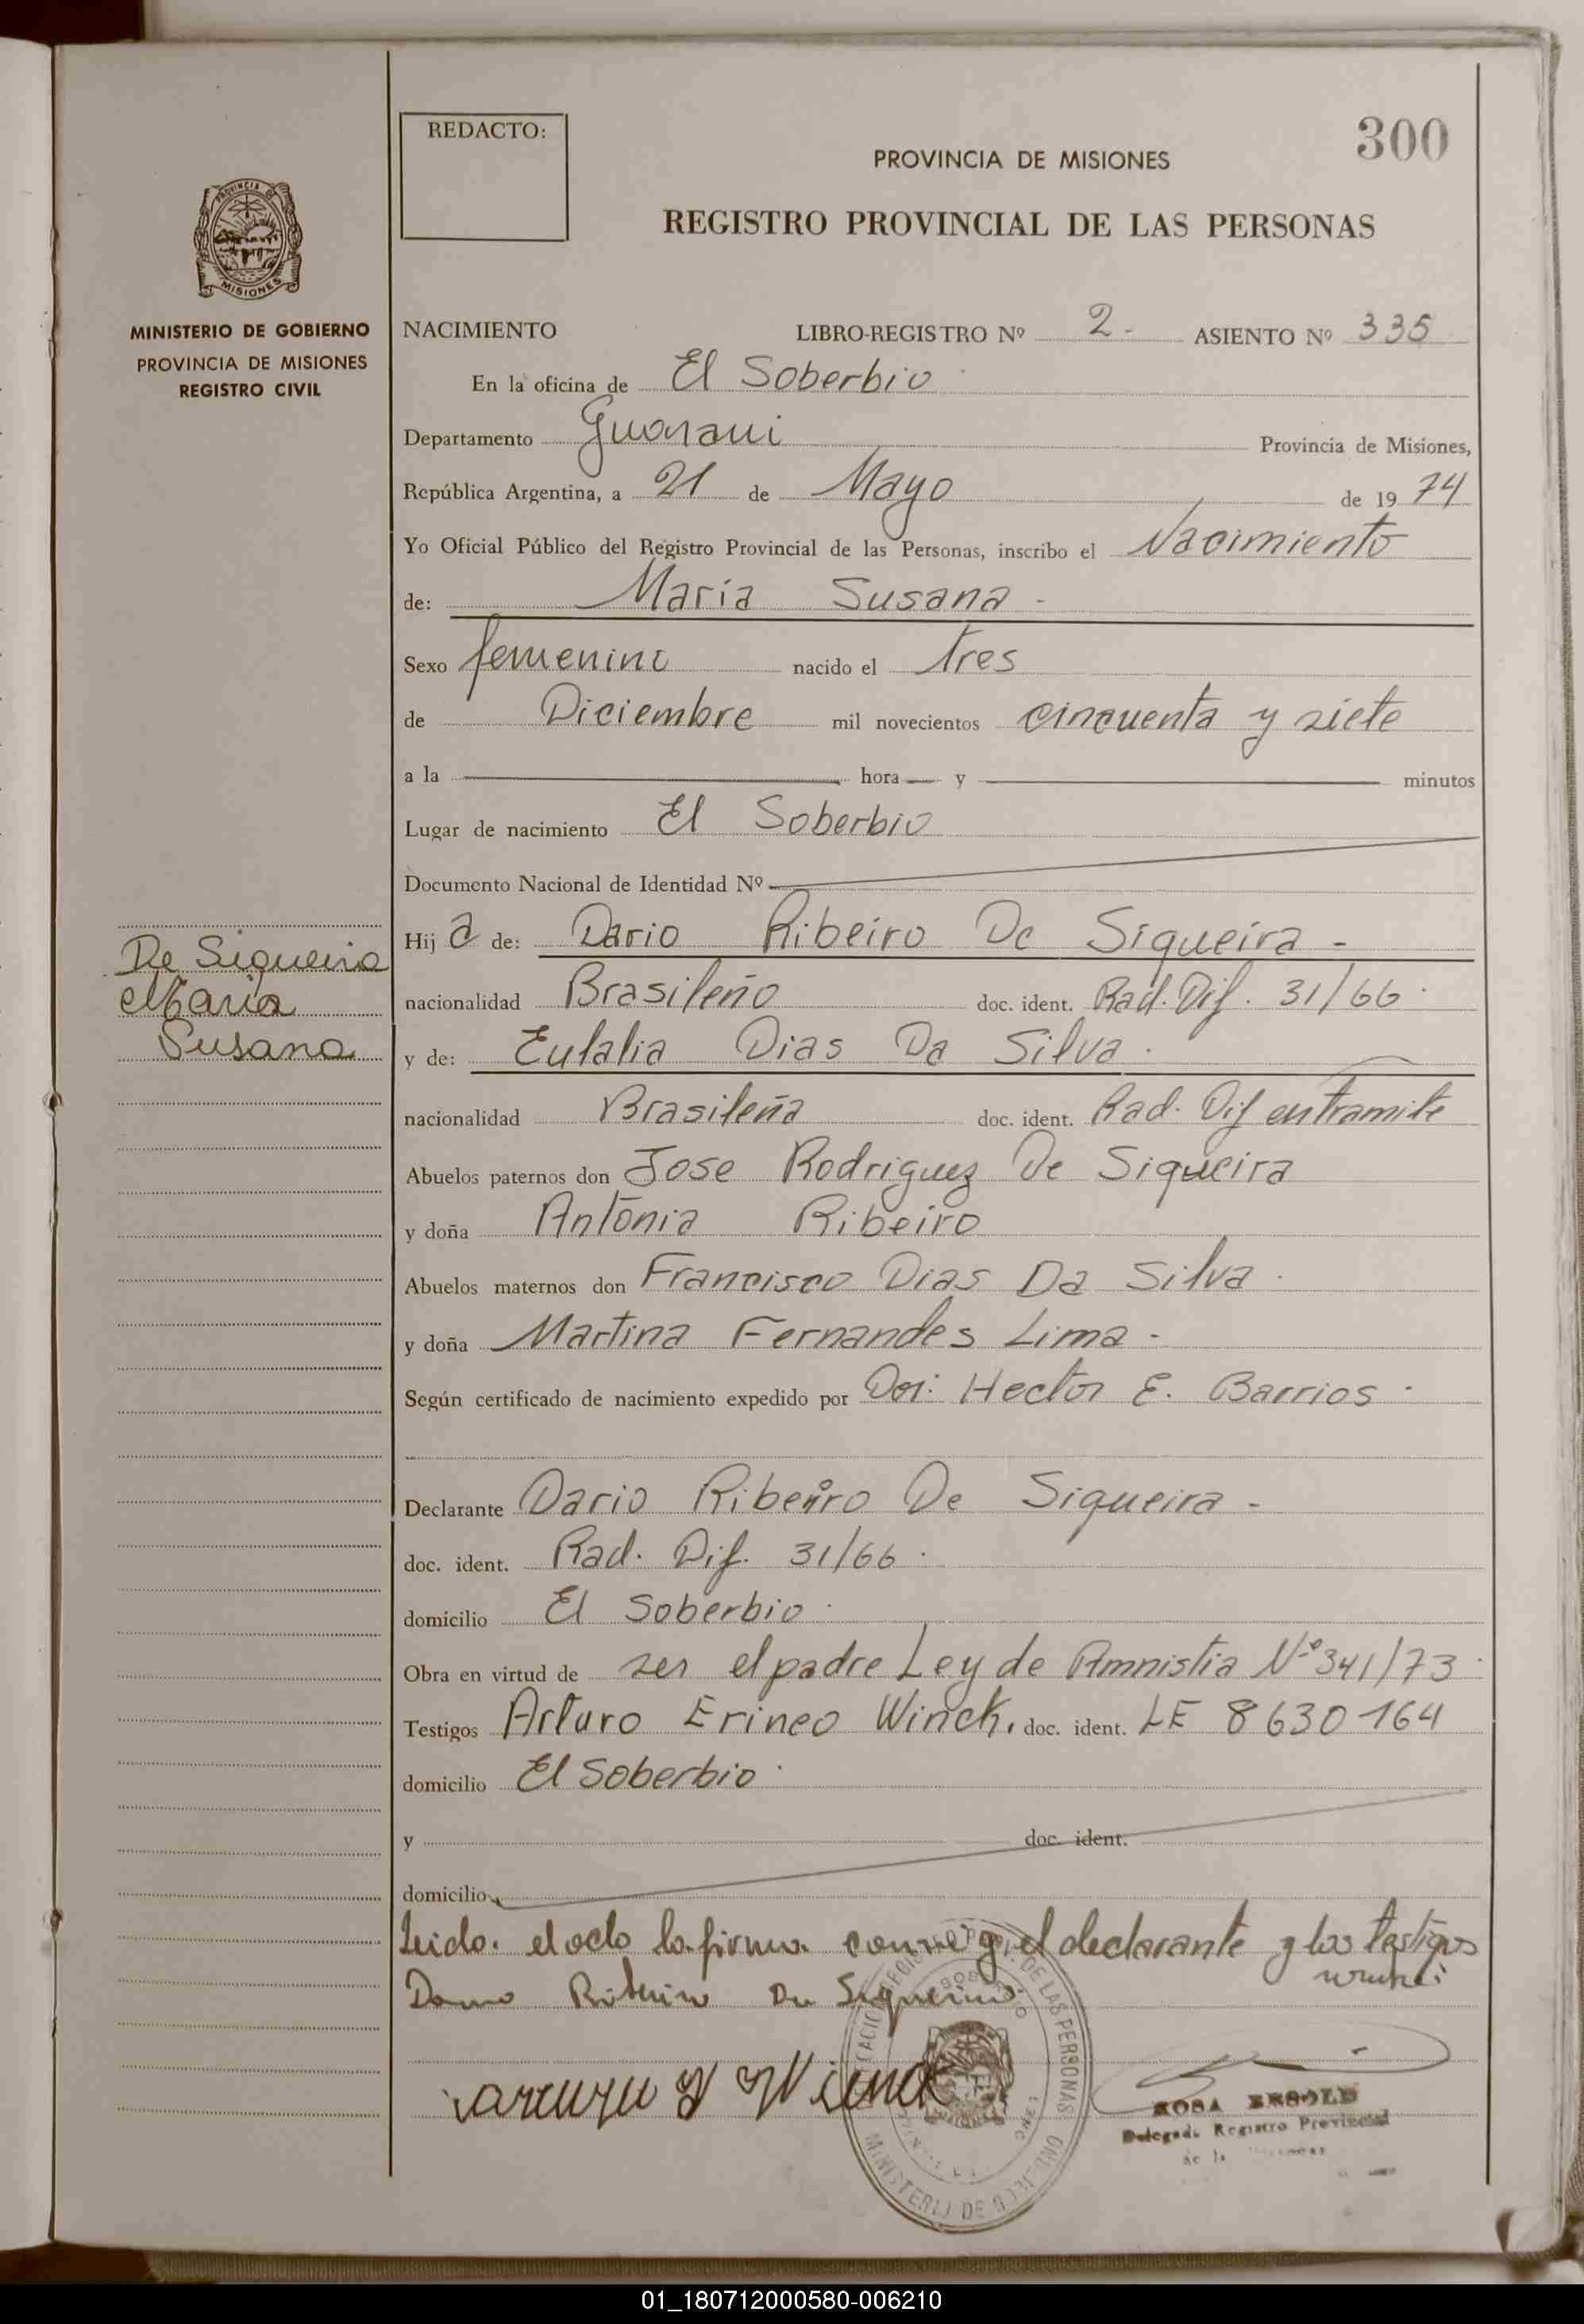 REDACTO:
300
PROVINCIA DE MISIONES
REGISTRO PROVINCIAL DE LAS PERSONAS
PROVINCIA DE
MISIONES
MINISTERIO DE GOBIERNO
PROVINCIA DE MISIONES
REGISTRO CIVIL
NACIMIENTO LIBRO-REGISTRO Nº 2- ASIENTO Nº 335
En la oficina de El Soberbio
Departamento Guarani Provincia de Misiones,
República Argentina, a 21 de Mayo de 19 74
Yo Oficial Público del Registro Provincial de las Personas, inscribo el Nacimiento
de: Maria Susana -
Sexo femenino nacido el tres
de Diciembre mil novecientos cincuenta y siete
a la hora y minutos
Lugar de nacimiento El Soberbio
Documento Nacional de Identidad Nº
Hij a de: Dario Ribeiro De Siqueira -
De Siqueira
Maria
Susana
nacionalidad Brasileño doc. ident. Rad. Dif. 31/66.
y de: Eulalia Dias Da Silva.
nacionalidad Brasileña doc. ident. Rad. Dif en tramite
Abuelos paternos don Jose Rodriguez De Siqueira
y doña Antonia Ribeiro
Abuelos maternos don Francisco Dias Da Silva.
y doña Martina Fernandes Lima -
Según certificado de nacimiento expedido por Hector E. Barrios.
Declarante Dario Ribeiro De Siqueira -
doc. ident. Rad. Dif. 31/66.
domicilio El Soberbio.
Obra en virtud de ser el padre Ley de Amnistia Nº 341/73.
Testigos Arturo Erineo Winck, doc. ident. LE 8630164
domicilio El Soberbio.
y doc. ident.
domicilio
Leido el acta la firma y el declarante y los testigos
Dario Ribeiro De Siqueira
Winck
DE LAS PERSONAS
MINISTERIO DE GOBIERNO
ROSA
Delegada Registro Provincial
de las
01_180712000580-006210